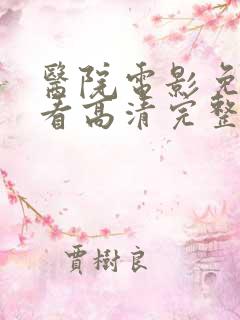 醫院電影免
看高清完整
賈樹良